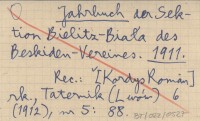 Jahrbuch der Sek-
tion Bielitz-Biała des
Beskiden-Vereines. 1911.
Rec.: [Kordys Roman]
rk., Taternik (Lwów) 6
(1912), nr 5: 88.